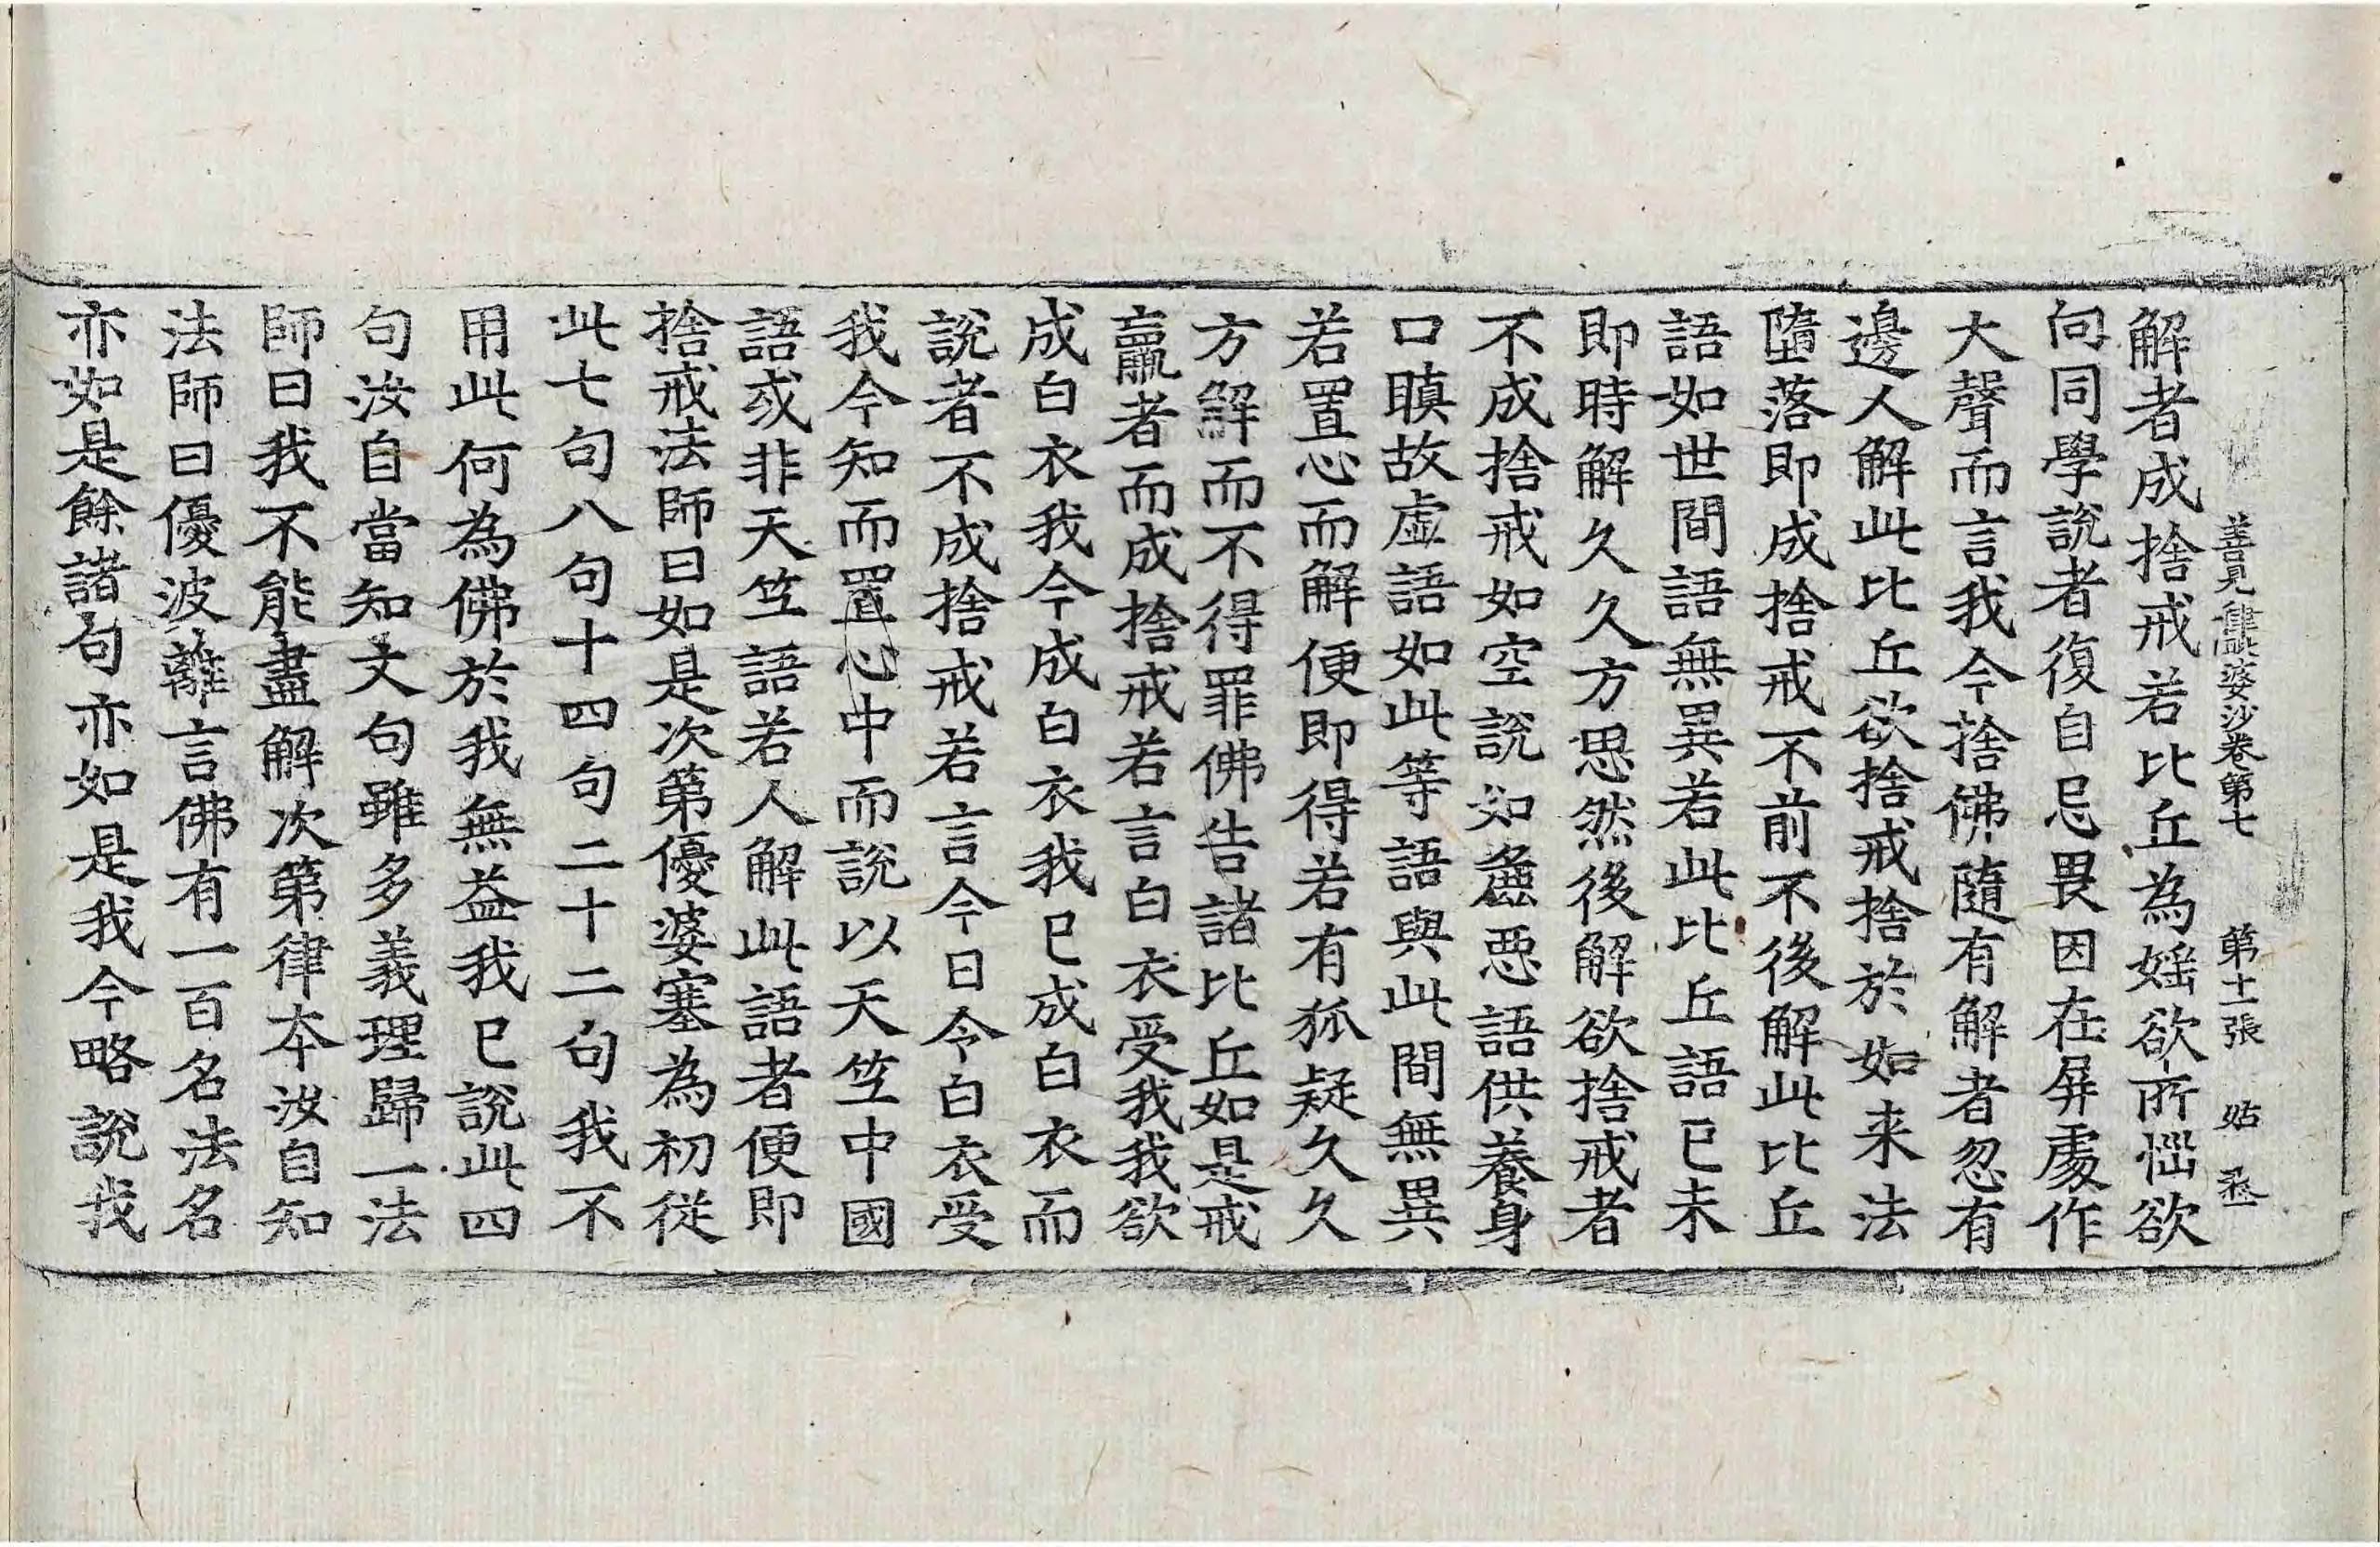 善見律毗婆沙卷第七 第十一張 姑 丞
解者成捨戒若比丘為婬欲所惱欲
向同學說者復自忌畏因在屏處作
大聲而言我今捨佛隨有解者忽有
邊人解此比丘欲捨戒捨於如来法
墮落即成捨戒不前不後解此比丘
語如世間語無異若此比丘語已未
即時解久久方思然後解欲捨戒者
不成捨戒如空說如麁惡語供養身
口瞋故虛語如此等語與此間無異
若置心而解便即得若有狐疑久久
方解而不得罪佛告諸比丘如是戒
羸者而成捨戒若言白衣受我我欲
成白衣我今成白衣我已成白衣而
說者不成捨戒若言今日令白衣受
我今知而置心中而說以天竺中國
語或非天竺語若人解此語者便即
捨戒法師曰如是次第優婆塞為初從
此七句八句十四句二十二句我不
用此何為佛於我無益我已說此四
句汝自當知文句雖多義理歸一法
師曰我不能盡解次第律本汝自知
法師曰優波離言佛有一百名法名
亦如是餘諸句亦如是我今略說我